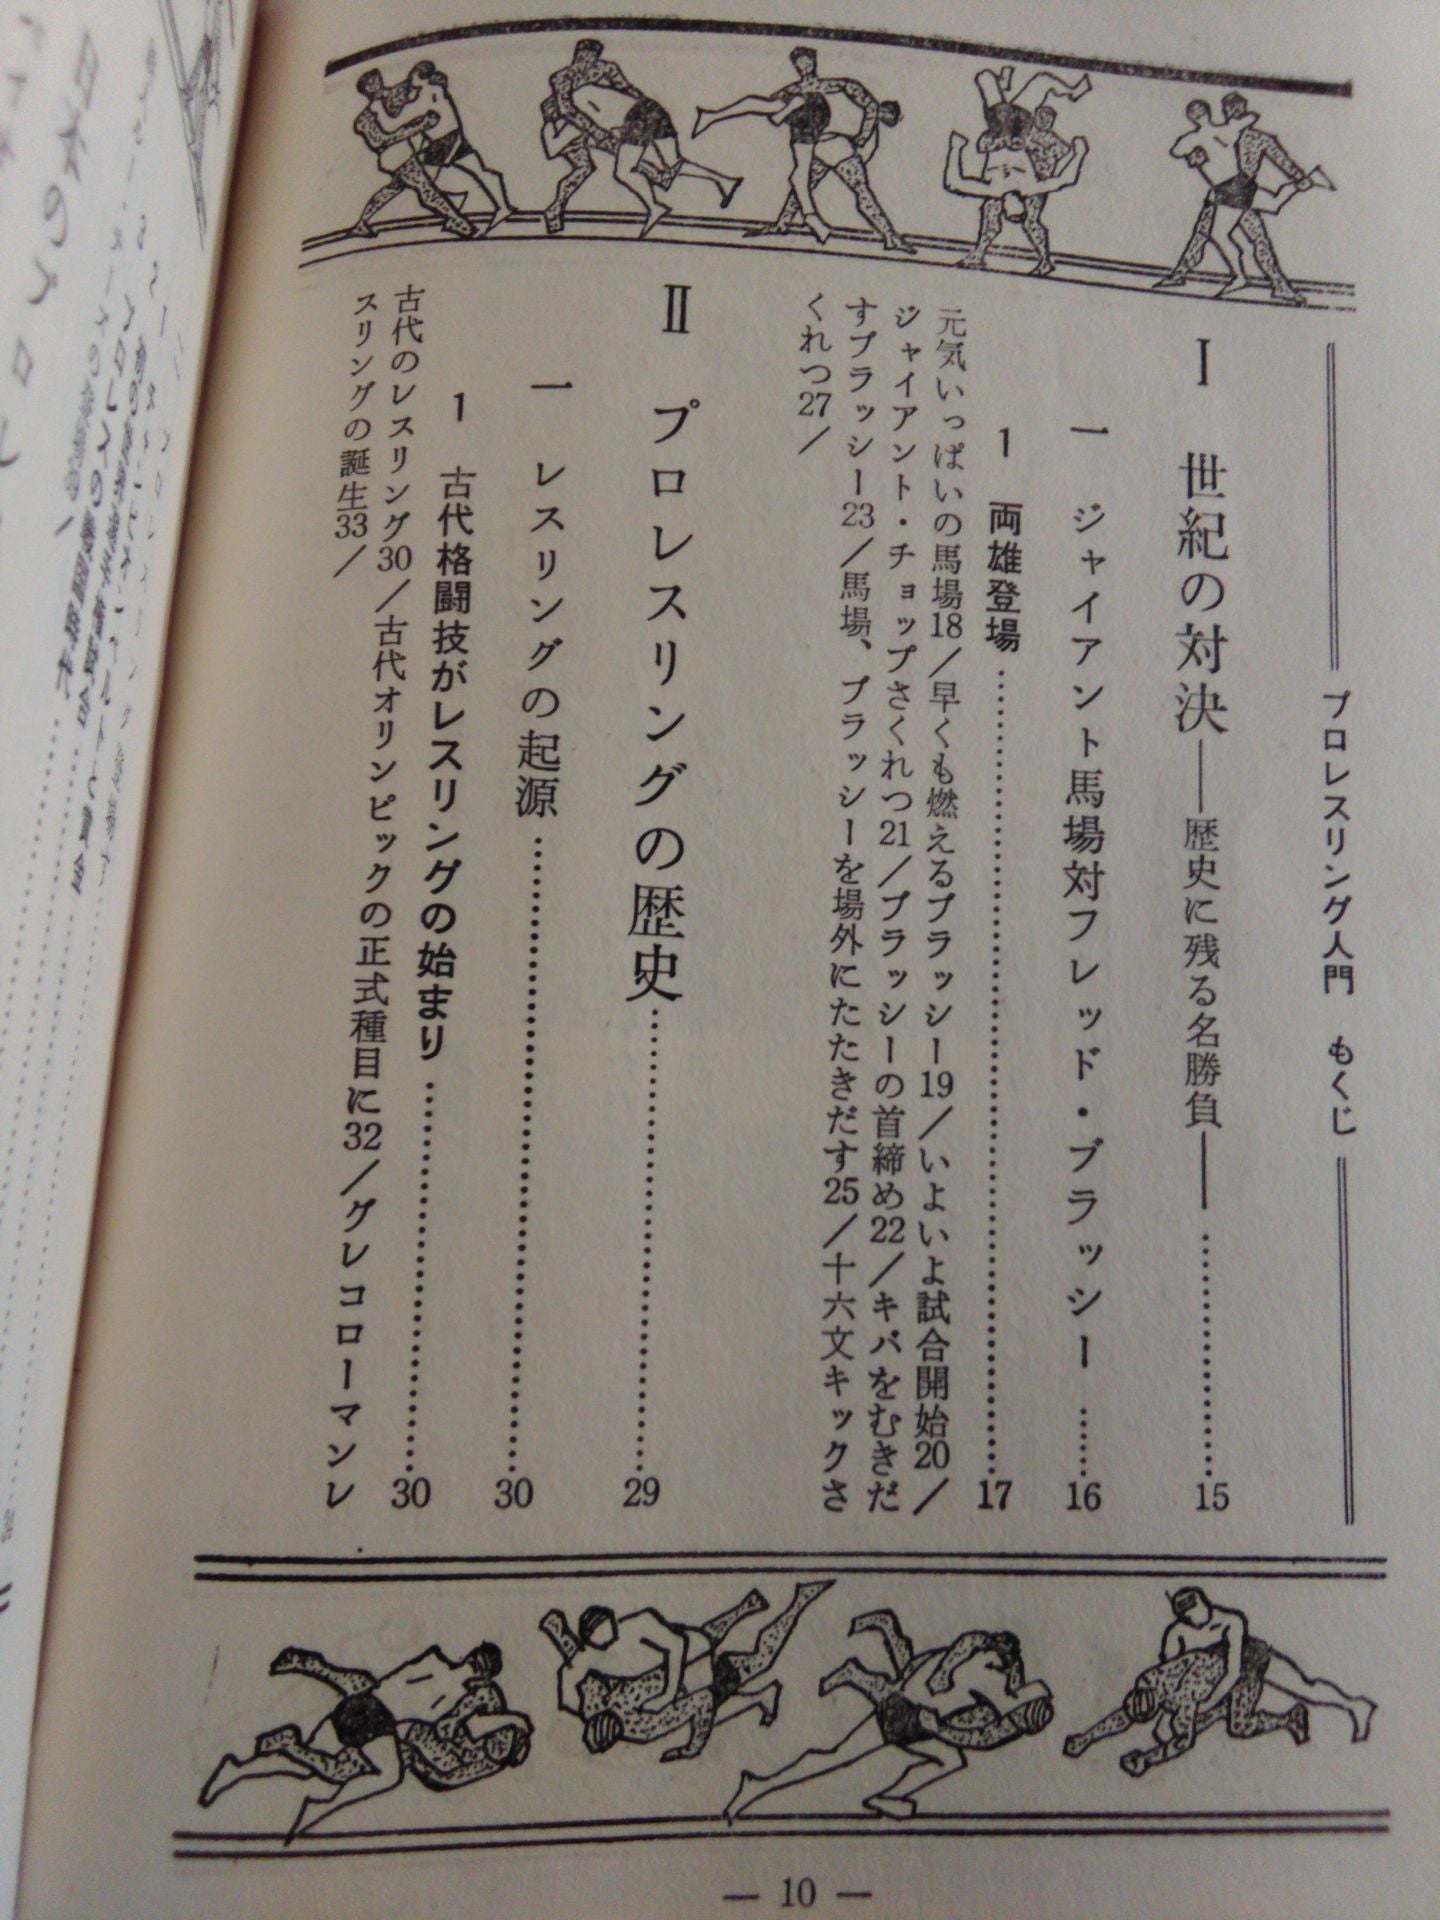 プロレスリング入門 もくじ
Ⅰ 世紀の対決――歴史に残る名勝負――……………15
一 ジャイアント馬場対フレッド・ブラッシー……16
1 両雄登場……………17
元気いっぱいの馬場18／早くも燃えるブラッシー19／いよいよ試合開始20／
ジャイアント・チョップさくれつ21／ブラッシーの首締め22／キバをむきだ
すブラッシー23／馬場、ブラッシーを場外にたたきだす25／十六文キックさ
くれつ27／
Ⅱ プロレスリングの歴史……………29
一 レスリングの起源……………30
1 古代格闘技がレスリングの始まり……………30
古代のレスリング30／古代オリンピックの正式種目に32／グレコローマンレ
スリングの誕生33／
— 10 —